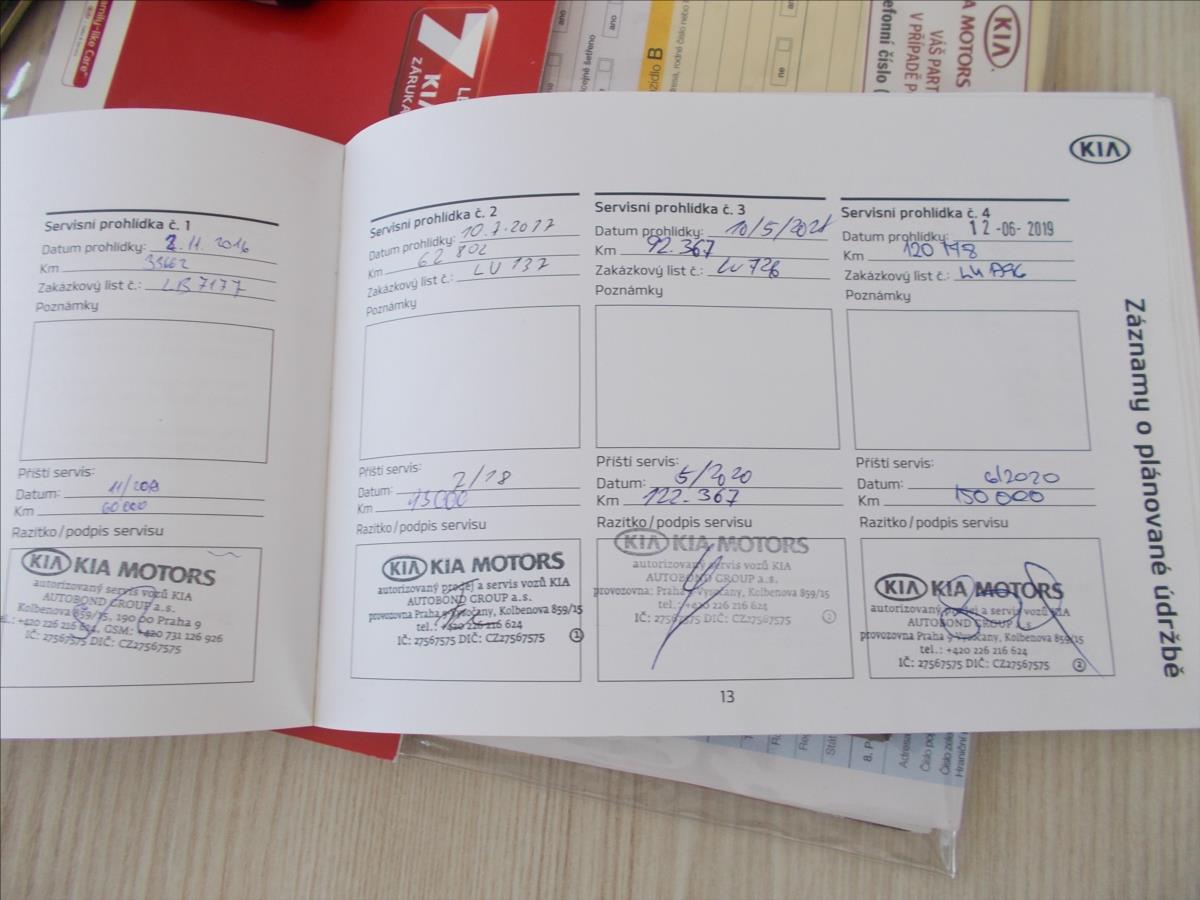 amily-like Care"
KIA
ZÁRUKA
ano
ano
ne
ozidlo B
ne
lefonní číslo (
V PŘÍPADĚ P
VÁŠ PART
A MOTORS
KIA
KIA
Záznamy o plánované údržbě
Servisní prohlídka č. 1
Datum prohlídky: 2.11.2016
Km
Zakázkový list č.: LB7177
Poznámky
Příští servis:
Datum:
Km 60000
Razítko/podpis servisu
KIA KIA MOTORS
autorizovaný servis vozů KIA
AUTOBOND GROUP a.s.
Kolbenova 859/15, 190 00 Praha 9
GSM: +420 731 126 926
IČ: 27567575 DIČ: CZ27567575
Servisní prohlídka č. 2
Datum prohlídky: 10.7.2017
Km 62 802
Zakázkový list č.: LU 137
Poznámky
Příští servis:
Datum: 2/18
Km
Razítko/podpis servisu
KIA KIA MOTORS
autorizovaný prodej a servis vozů KIA
AUTOBOND GROUP a.s.
provozovna Praha 9 Vysočany, Kolbenova 859/15
tel.: +420 226 216 624
IČ: 27567575 DIČ: CZ27567575 1
Servisní prohlídka č. 3
Datum prohlídky: 10/5/
Km 92.367
Zakázkový list č.: LU 726
Poznámky
Příští servis:
Datum: 5/2020
Km 122.367
Razítko/podpis servisu
KIA KIA MOTORS
autorizovaný servis vozů KIA
AUTOBOND GROUP a.s.
provozovna: Praha 9 Vysočany, Kolbenova 859/15
tel.: 226 216 624
IČ: 27567575 DIČ: CZ27567575 2
Servisní prohlídka č. 4
Datum prohlídky: 12 -06- 2019
Km 120
Zakázkový list č.:
Poznámky
Příští servis:
Datum: 6/2020
Km 150 000
Razítko/podpis servisu
KIA KIA MOTORS
autorizovaný prodej a servis vozů KIA
AUTOBOND GROUP a.s
provozovna Praha 9 Vysočany, Kolbenova 859/15
tel.: +420 226 216 624
IČ: 27567575 DIČ: CZ27567575 2
13
8. P
Adresa
Číslo pop
Hraniční